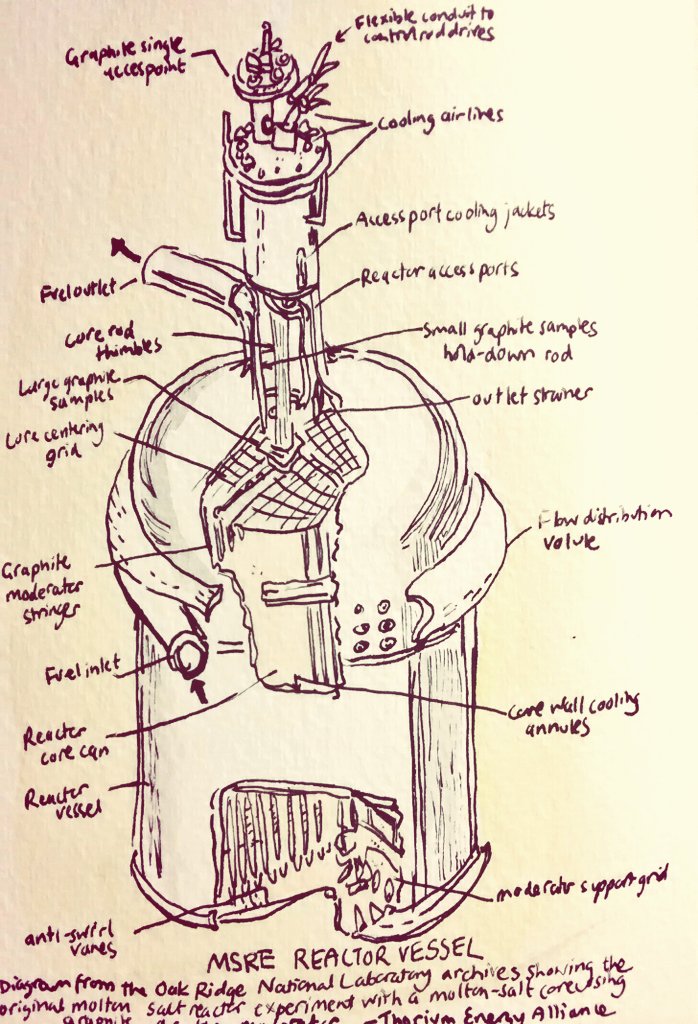 Flexible conduit to
control rod drives
Graphite single
acces point
Cooling airlines
Access port cooling jackets
Fuel outlet
Reactor access ports
core rod
thimbles
Small graphite samples
hold-down rod
Large graphite
samples
outlet strainer
Core centering
grid
Flow distribution
volute
Graphite
moderator
stringer
Fuel inlet
Core wall cooling
annules
Reactor
core can
Reactor
vessel
moderator support grid
anti-swirl
vanes
MSRE REACTOR VESSEL
Diagram from the Oak Ridge National Laboratory archives showing the
original molton salt reactor experiment with a molton-salt core using
- Thorium Energy Alliance